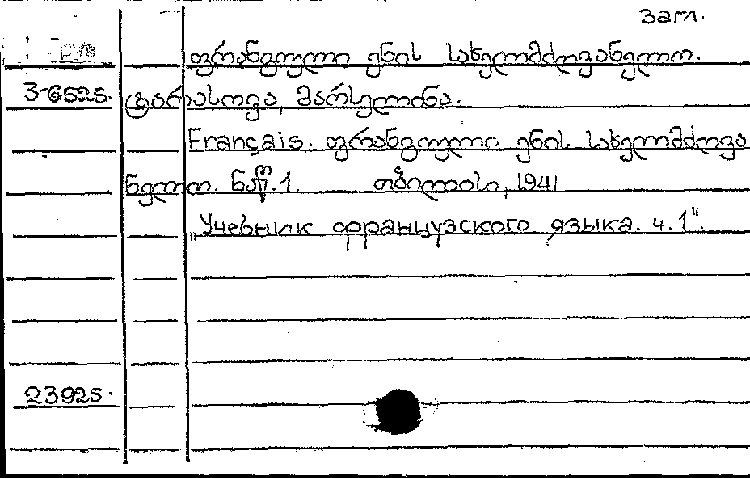 ზაᲗ.
ფრანგული ენის სახელმძღვანელო.
3-652ნ. ტარასოვა, მარსელინა.
Français. ფრანგული ენის. სახელმძღვა
ნელო. ნაწ. 1. თბილისი, 1941
„Учебник французского языка. ч. 1".
2392ნ.